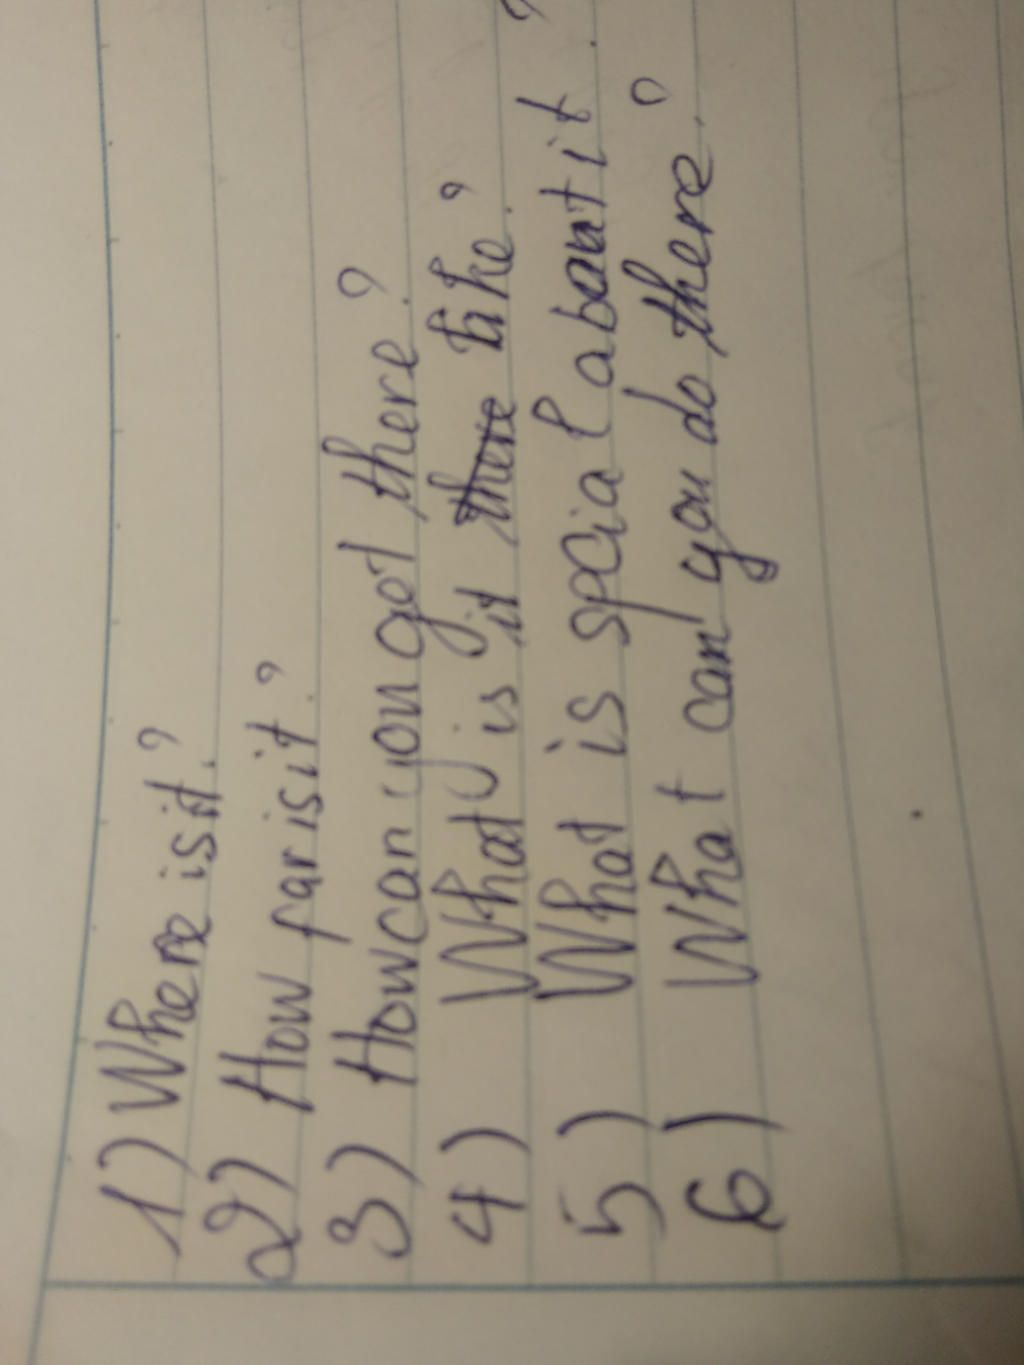 1) Where is it?
2) How far is it?
3) How can you got there?
4) What is it there like?
5) What is spcial about it?
6) What can you do there?